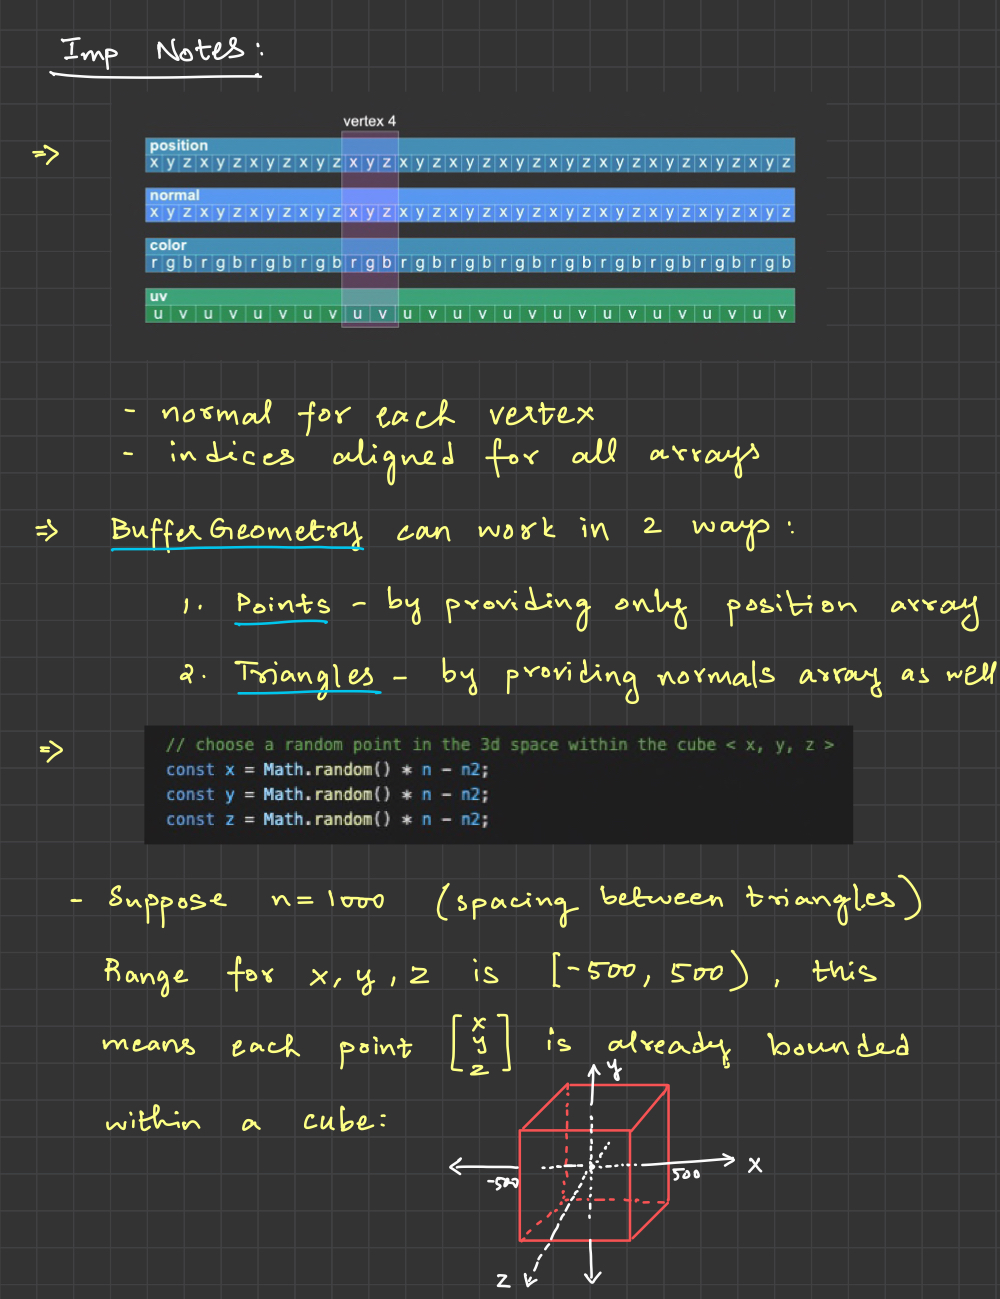 Imp Notes:
vertex 4
=>
position
x y z x y z x y z x y z x y z x y z x y z x y z x y z x y z x y z x y z x y z
normal
x y z x y z x y z x y z x y z x y z x y z x y z x y z x y z x y z x y z x y z
color
r g b r g b r g b r g b r g b r g b r g b r g b r g b r g b r g b r g b r g b
uv
u v u v u v u v u v u v u v u v u v u v u v u v u v
- normal for each vertex
- indices aligned for all arrays
=> BufferGeometry can work in 2 ways :
1. Points - by providing only position array
2. Triangles - by providing normals array as well
=>
// choose a random point in the 3d space within the cube < x, y, z >
const x = Math.random() * n - n2;
const y = Math.random() * n - n2;
const z = Math.random() * n - n2;
- Suppose n = 1000 (spacing between triangles)
Range for x, y, z is [-500, 500), this
means each point [x y z] is already bounded
within a cube:
y
x
-500
500
z